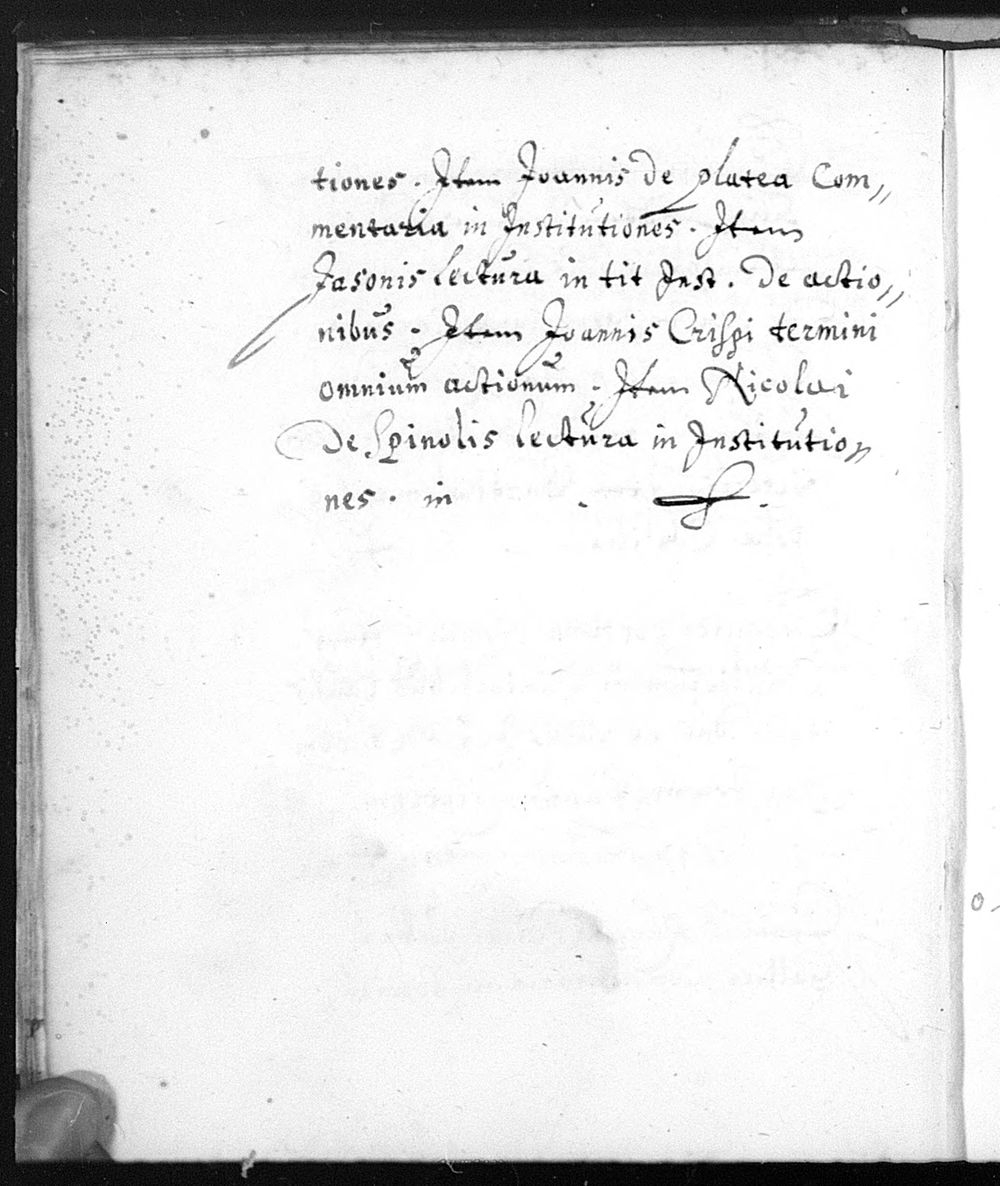 tiones. Item Joannis de platea Com„
mentaria in Institutiones. Item
Jasonis lectura in tit Inst. De actio„
nibus. Item Joannis Crispi termini
omnium actionum. Item Nicolai
De Spinolis lectura in Institutio„
nes. in